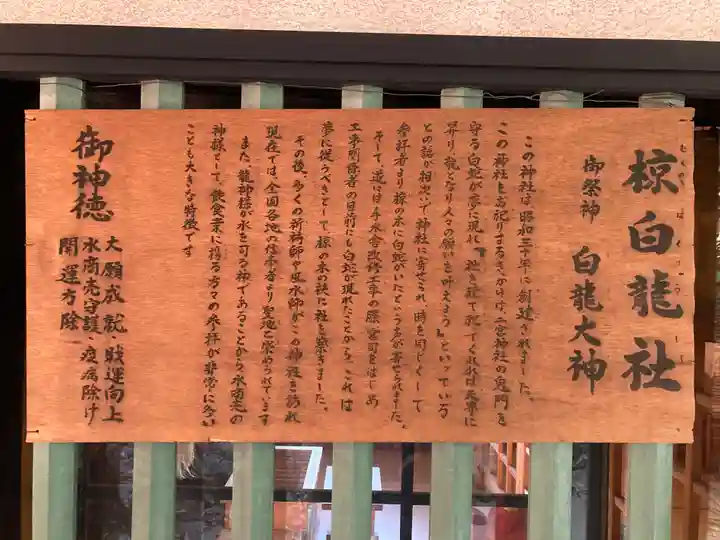 椋白龍社
むくのきはくりゅうしゃ
御祭神 白龍大神
この神社は昭和三十年に創建されました。
この神社をお記りするきっかけは、二宮神社の鬼門を
守る白蛇が夢に現れ『祀を建て祀てくれれば天寧に
昇り、龍となり人々の願いを叶えよう』といっている
との話が相次いで神社に寄せられ、時を同じくして
参拝者より椋の木に白蛇がいたという声が寄せられました。
そして、遂には手水舎改修工事の際、宮司をはじめ
工事関係者の目前にも白蛇が現れたことから、これは
夢に従うべきとして、椋の木の袂に社を築きました。
その後、多くの祈祷師や風水師がこの神社を訪れ
現在では、全国各地の信奉者より聖地と崇められています
また、龍神様が水を司る神であることから水商売の
神様として、飲食業に携る方々の参拝が非常に多い
ことも大きな特徴です
御神徳
大願成就・財運向上
水商売守護・疫病除け
開運方除